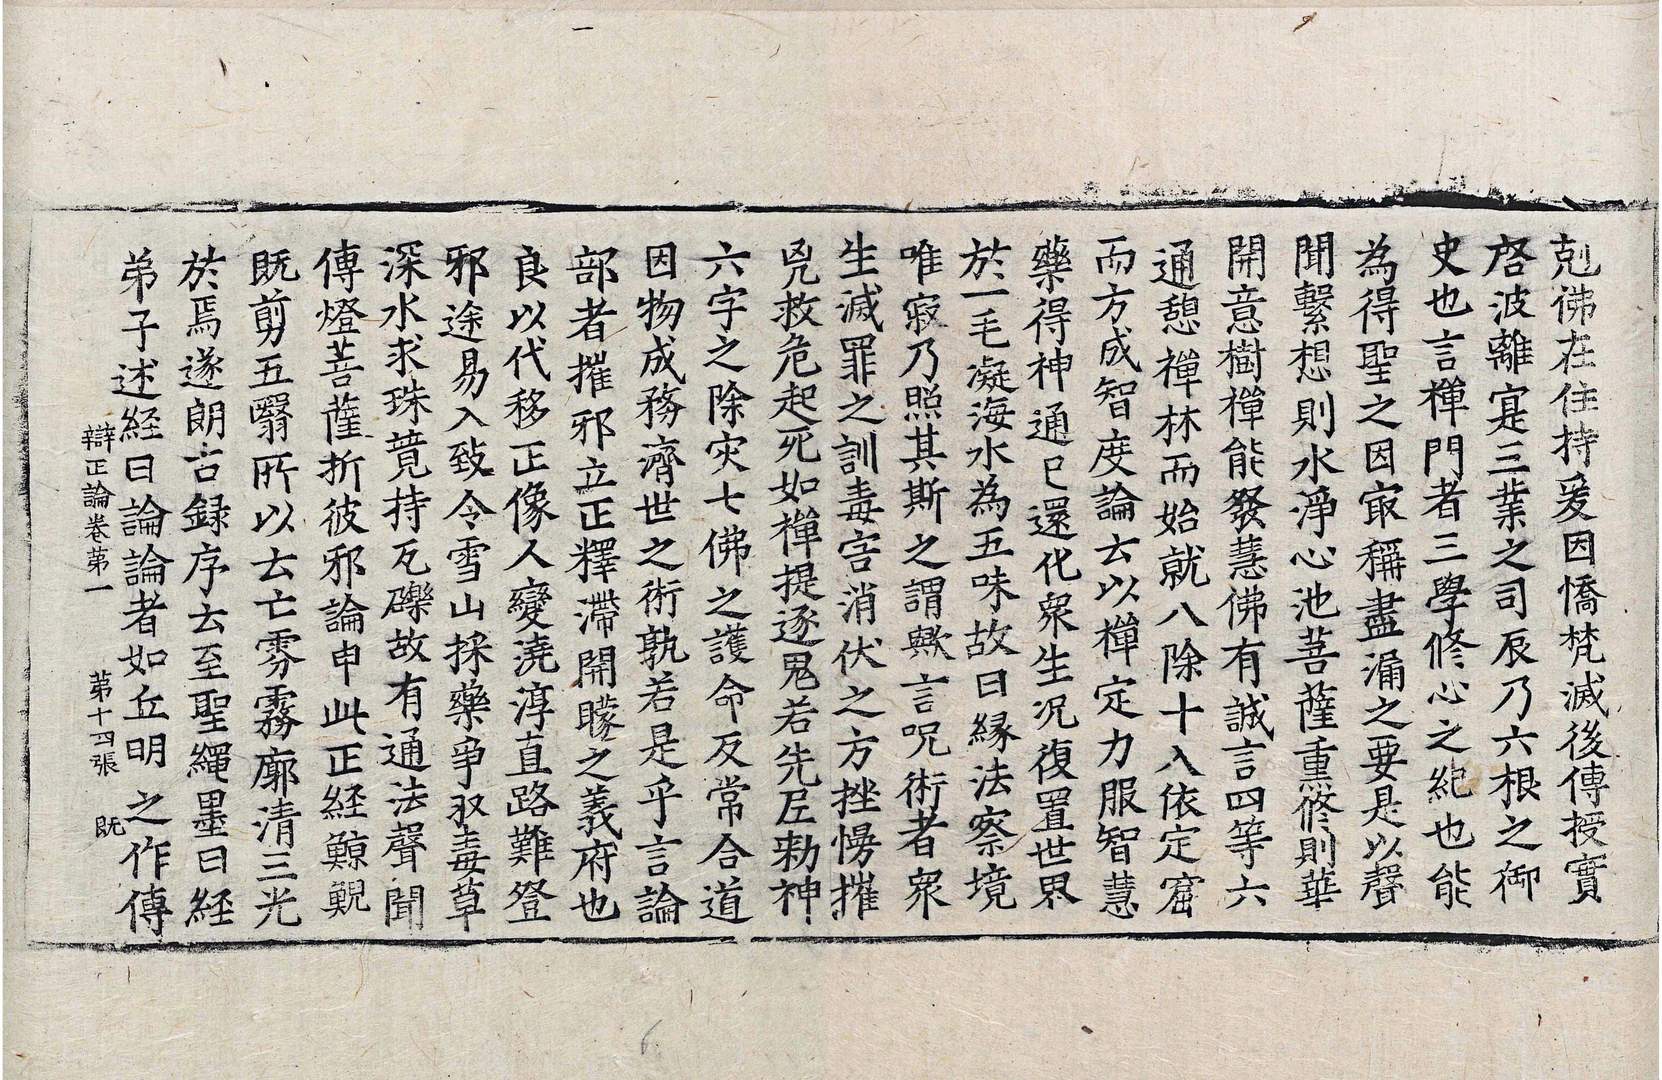 剋佛在住持爰因憍梵滅後傳授實
啓波離寔三業之司辰乃六根之御
史也言禪門者三學修心之紀也能
為得聖之因㝡稱盡漏之要是以聲
聞繫想則水淨心池菩薩重熏修則華
開意樹禪能發慧佛有誠言四等六
通憩禪林而始就八除十入依定窟
而方成智度論云以禪定力服智慧
藥得神通已還化衆生況復置世界
於一毛凝海水為五味故曰緣法察境
唯寂乃照其斯之謂歟言呪術者衆
生滅罪之訓毒害消伏之方挫慢摧
兇救危起死如禪提逐鬼若先尼勑神
六字之除灾七佛之護命反常合道
因物成務濟世之術孰若是乎言論
部者摧邪立正釋滯開矇之義府也
良以代移正像人變澆淳直路難登
邪途易入致令雪山採藥爭収毒草
深水求珠竟持瓦礫故有通法聲聞
傳燈菩薩折彼邪論申此正経鯨鯢
既剪五翳所以云亡雰霧廓清三光
於焉遂朗古錄序云至聖繩墨曰経
弟子述経曰論論者如丘明之作傳
辯正論卷第一 第十四張 既